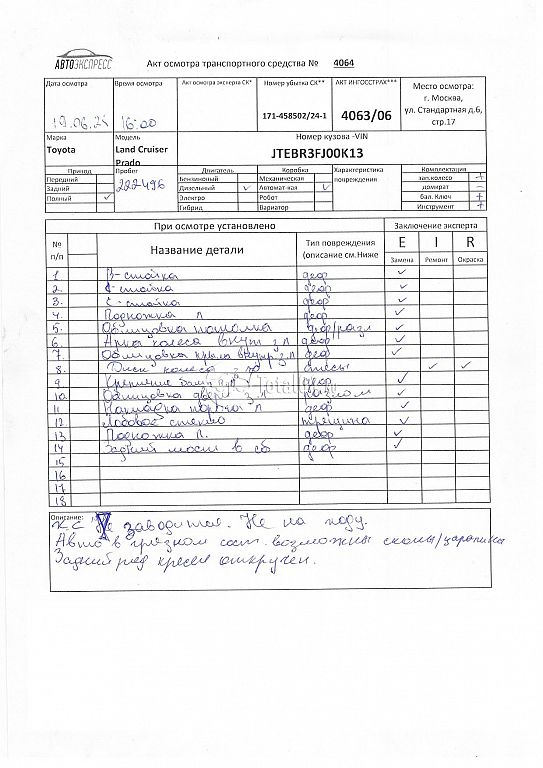 АВТОЭКСПРЕСС
Акт осмотра транспортного средства № 4064
Дата осмотра Время осмотра Акт осмотра эксперта СК* Номер убытка СК** АКТ ИНГОССТРАХ***
Место осмотра:
г. Москва,
ул. Стандартная д.6,
стр.17
16:00 171-458502/24-1 4063/06
Марка Модель Номер кузова -VIN
Toyota Land Cruiser Prado JTEBR3FJ00K13
Привод Пробег Двигатель Коробка Характеристика повреждения Комплектация
222496
Передний Бензиновый Механическая зап.колесо +
Задний Дизельный ✓ Автоматная ✓ домкрат –
Полный ✓ Электро Робот бал. Ключ +
Гибрид Вариатор Инструмент +
При осмотре установлено Заключение эксперта
№ п/п Название детали Тип повреждения (описание см.Ниже E I R
Замена Ремонт Окраска
1. В-стойка деф ✓
2. А-стойка деф ✓
3. С-стойка деф ✓
4. Подножка Л деф ✓
5. Облицовка потолка деф/разл ✓
6. Арка колеса внут з л деф ✓
7. Облицовка крыла внутр з л деф ✓
8. Диск колеса ✓ ✓
9. Крепление деф ✓
10. Облицовка двери з л разлом ✓
11 Накладка порога л деф ✓
12 Лобовое стекло трещина ✓
13 Подножка П. деф ✓
14 Задний мост в сб деф ✓
15
16
17
18
Описание:
КС Не заводится. Не на ходу.
Авто в грязном сост. возможны сколы/царапины
Задний ряд кресел откручен.